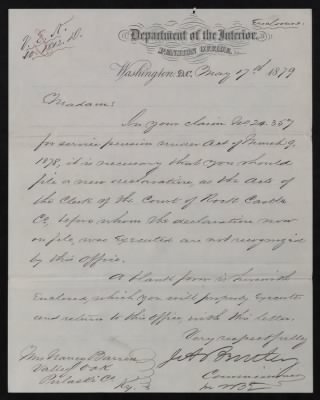 Enclosure.
Department of the Interior,
PENSION OFFICE,
Washington, D.C. May 17th 1879
Madam:
In your claim No 24.357
for service pension under Act of March 9,
1878, it is necessary that you should
file a new declaration, as the Acts of
the Clerk of the Court of Rock Castle
Co, before whom the declaration now
on file, was executed are not recognized
by this Office.
A blank form is herewith
enclosed, which you will properly execute
and return to this Office, with this letter.
Very respectfully
Commissioner
Mrs Nancy
Valley Oak
Pulaski Co
Ky.